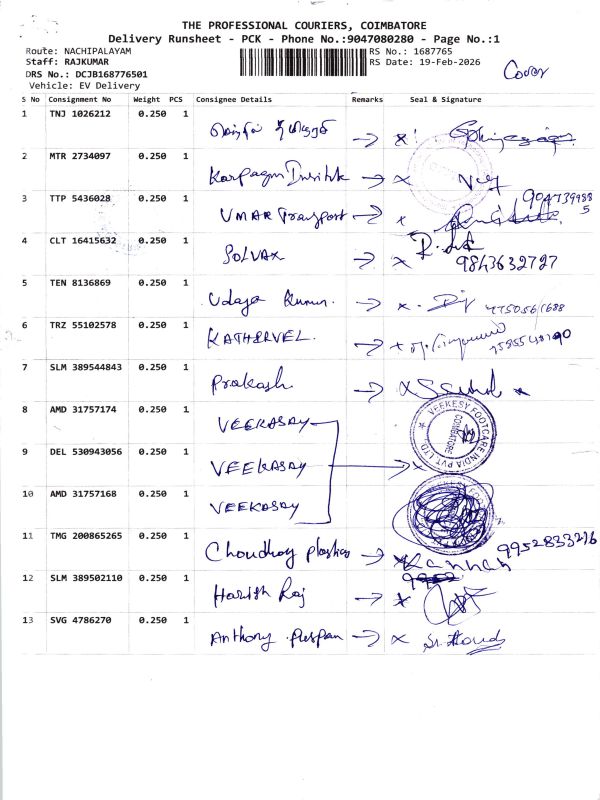 THE PROFESSIONAL COURIERS, COIMBATORE
Delivery Runsheet - PCK - Phone No.:9047080280 - Page No.:1
Route: NACHIPALAYAM RS No.: 1687765
Staff: RAJKUMAR RS Date: 19-Feb-2026
Cover
DRS No.: DCJB168776501
Vehicle: EV Delivery
S No Consignment No Weight PCS Consignee Details Remarks Seal & Signature
1 TNJ 1026212 0.250 1
2 MTR 2734097 0.250 1 Karpagam
3 TTP 5436028 0.250 1 UMAR Transport
4 CLT 16415632 0.250 1 SOLVAX 9843632727
5 TEN 8136869 0.250 1 Udaya Kumar
6 TRZ 55102578 0.250 1 KATHIRVEL
7 SLM 389544843 0.250 1 Prakash
8 AMD 31757174 0.250 1 VEEKASAY VEEKESY FOOTCARE INDIA PVT. LTD. COIMBATORE
9 DEL 530943056 0.250 1 VEEKASAY
10 AMD 31757168 0.250 1 VEEKASAY
11 TMG 200865265 0.250 1 Choudhay plastics Kannan 9952833216
12 SLM 389502110 0.250 1 Harish Raj
13 SVG 4786270 0.250 1 Anthony